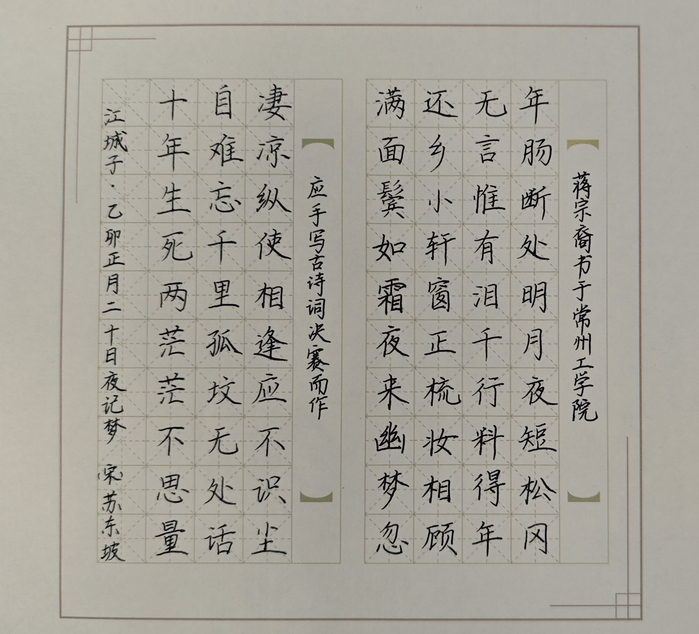 江城子·乙卯正月二十日夜记梦 宋 苏东坡
十年生死两茫茫不思量
自难忘千里孤坟无处话
凄凉纵使相逢应不识尘
应手写古诗词决赛而作
满面鬓如霜夜来幽梦忽
还乡小轩窗正梳妆相顾
无言惟有泪千行料得年
年肠断处明月夜短松冈
蒋宗裔书于常州工学院